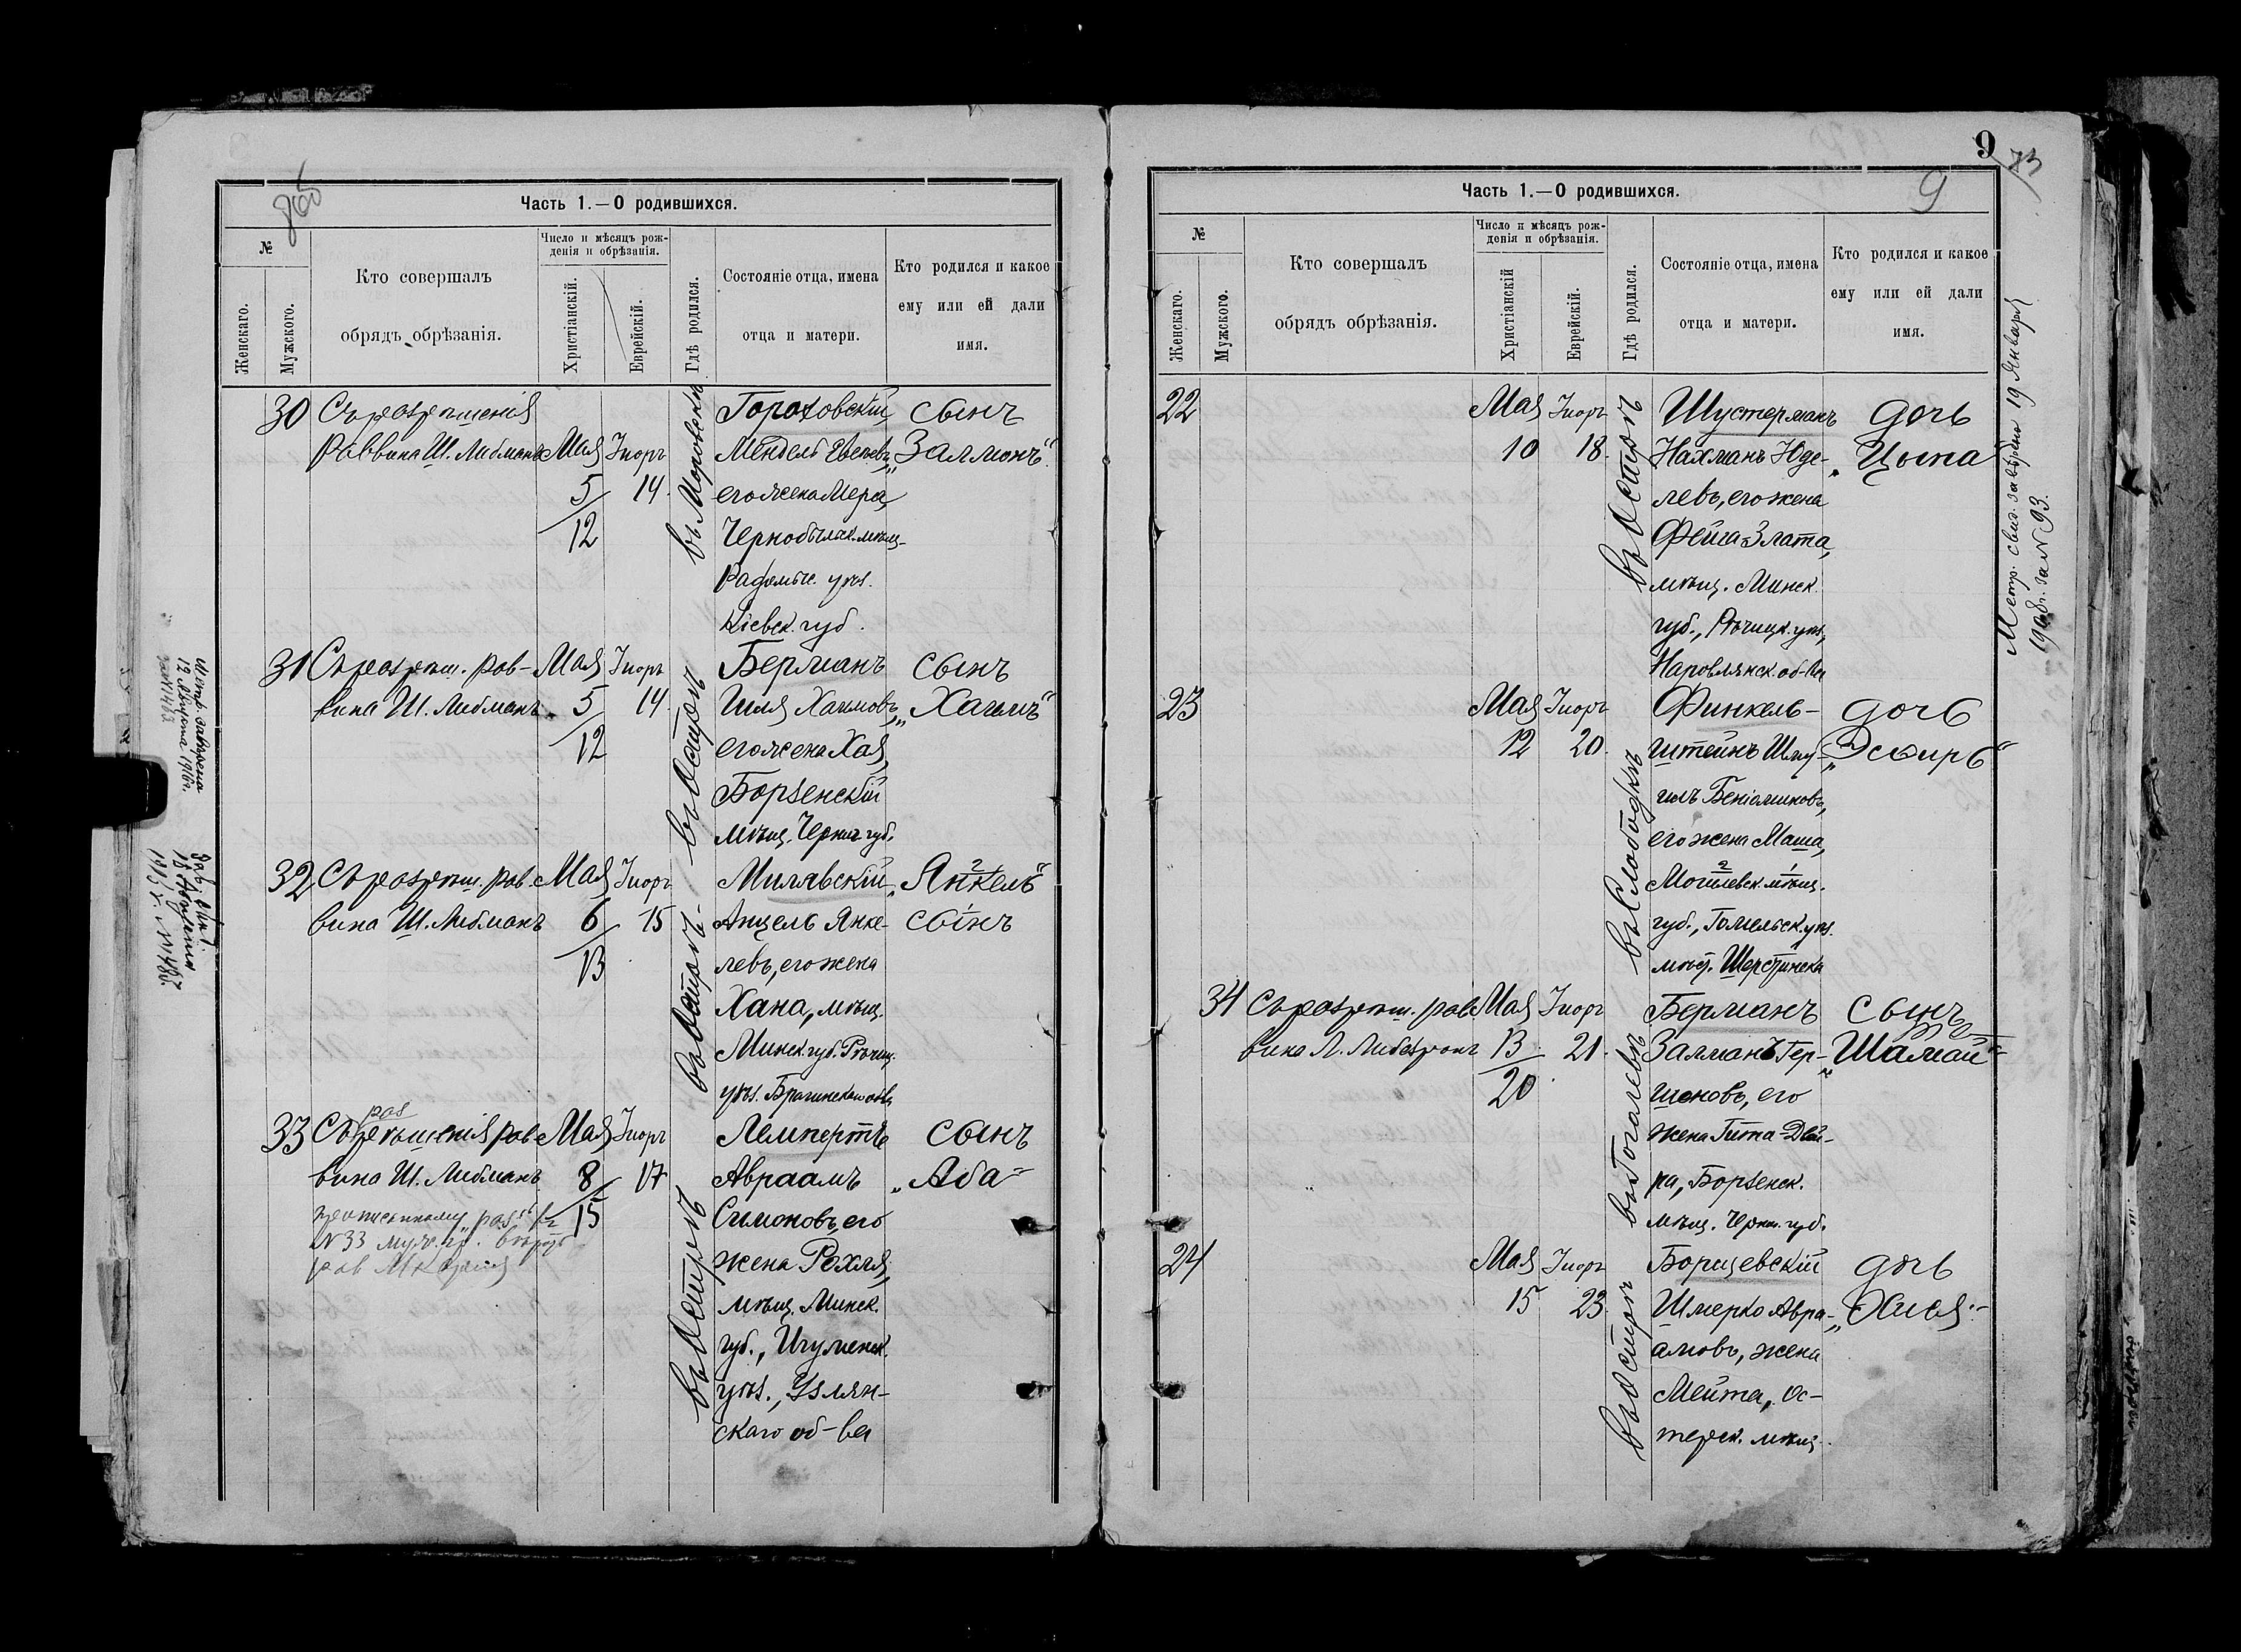 865
Часть 1.—О родившихся.
№
Женскаго.
Мужского.
Кто совершалъ
обрядъ обрѣзанія.
Число и мѣсяцъ рож-
денія и обрѣзанія.
Христіанскій.
Еврейскій.
Гдѣ родился.
Состояніе отца, имена
отца и матери.
Кто родился и какое
ему или ей дали
имя.
30 Съ разрѣшенія
Раввина Ш. Либманъ
Мая Іюръ
5 14
12
въ Моровскъ
Гороховскій
Мендель
его жена Мера,
Чернобыльск. мѣщ.
Радомыс. уѣз.
Кіевск. губ.
сынъ
„Залмонъ“
31 Съ разрѣш. рав-
вина Ш. Либманъ
Мая Іюръ
5 14
12
въ Острѣ
Берманъ
Шая Хаимовъ,
его жена Хая,
Борзенскій
мѣщ. Черниг губ.
сынъ
„Хаимъ“
32 Съ разрѣш. рав-
вина Ш. Либманъ
Мая Іюръ
6 15
13
въ Острѣ
Милявскій
Анцель Янке-
левъ, его жена
Хана, мѣщ.
Минск. губ. Рѣчиц.
уѣз. Брагинскаго об-ва
2
„Янкель“
1
сынъ
33 Съ разрѣшенія рав-
вина Ш. Либманъ
раз
№ 33 муж.
Мая Іюръ
8 17
15
въ Острѣ
Лемпертъ
Авраамъ
Симоновъ, его
жена Рохля,
мѣщ. Минск.
губ., Игуменск.
уѣз., Узлян-
скаго об-ва
сынъ
„Аба“
Метр. завѣрена
12 Августа 1910 г.
9
73
9
Часть 1.—О родившихся.
№
Женскаго.
Мужского.
Кто совершалъ
обрядъ обрѣзанія.
Число и мѣсяцъ рож-
денія и обрѣзанія.
Христіанскій
Еврейскій.
Гдѣ родился.
Состояніе отца, имена
отца и матери.
Кто родился и какое
ему или ей дали
имя.
22
Мая Іюръ
10 18
въ Острѣ
Шустерманъ
Нахманъ Юде-
левъ, его жена
Фейга-Злата,
мѣщ. Минск.
губ., Рѣчицк. уѣз,
Наровлянск. об-ва
дочь
„Цыпа“
23
Мая Іюръ
12 20
въ Слободкѣ
Финкель-
штейнъ Шму-
илъ Беніоминовъ,
его жена Маша,
2 1
Могилевск. мѣщ.
губ., Гомельск. уѣз.
мѣст. Шерстинска
дочь
„Эсфирь“
34 Съ разрѣш. рав-
вина
Мая Іюръ
13 21
20
Берманъ
Залманъ Гер-
шоновъ, его
жена Гита-Двей-
ра, Борзенск.
мѣщ. Черниг. губ.
сынъ
„Шамай“
24
Мая Іюръ
15 23
въ Острѣ
Борщевскій
Шмерко Авра-
амовъ, жена
Мейта, Ос-
терск. мѣщ.
дочь
„Хися“
Метр. свид. завѣрен 19 Января
1908 г. за № 93.